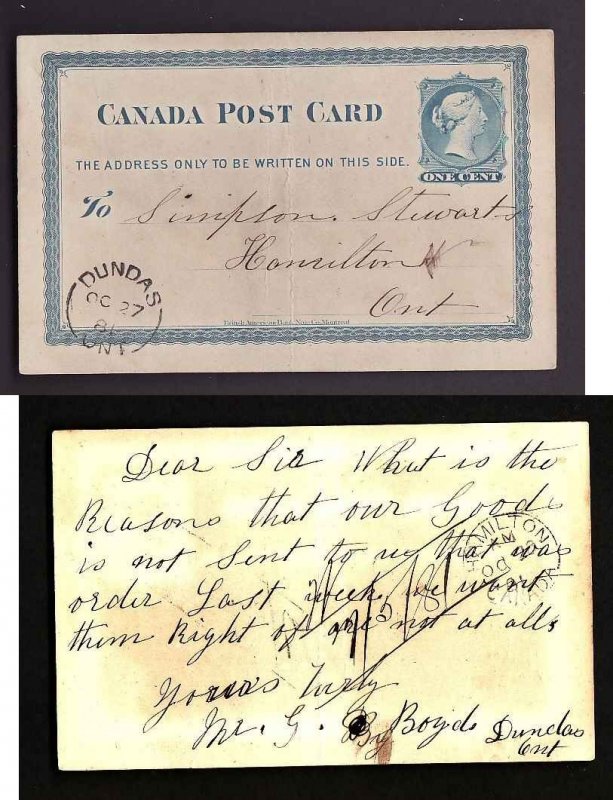 CANADA POST CARD
ONE CENT
THE ADDRESS ONLY TO BE WRITTEN ON THIS SIDE.
To Simpson. Stewart
Hamilton
Ont
DUNDAS
OC 27
81
ONT
British American Bank Note Co. Montreal
Dear Sir What is the
Reasons that our Goods
is not Sent to us that was
order Last week, we want
them Right of are not at all
Yours Truly
Mr. G. Boyd
Dundas
Ont
HAMILTON
AM
OC
CANADA